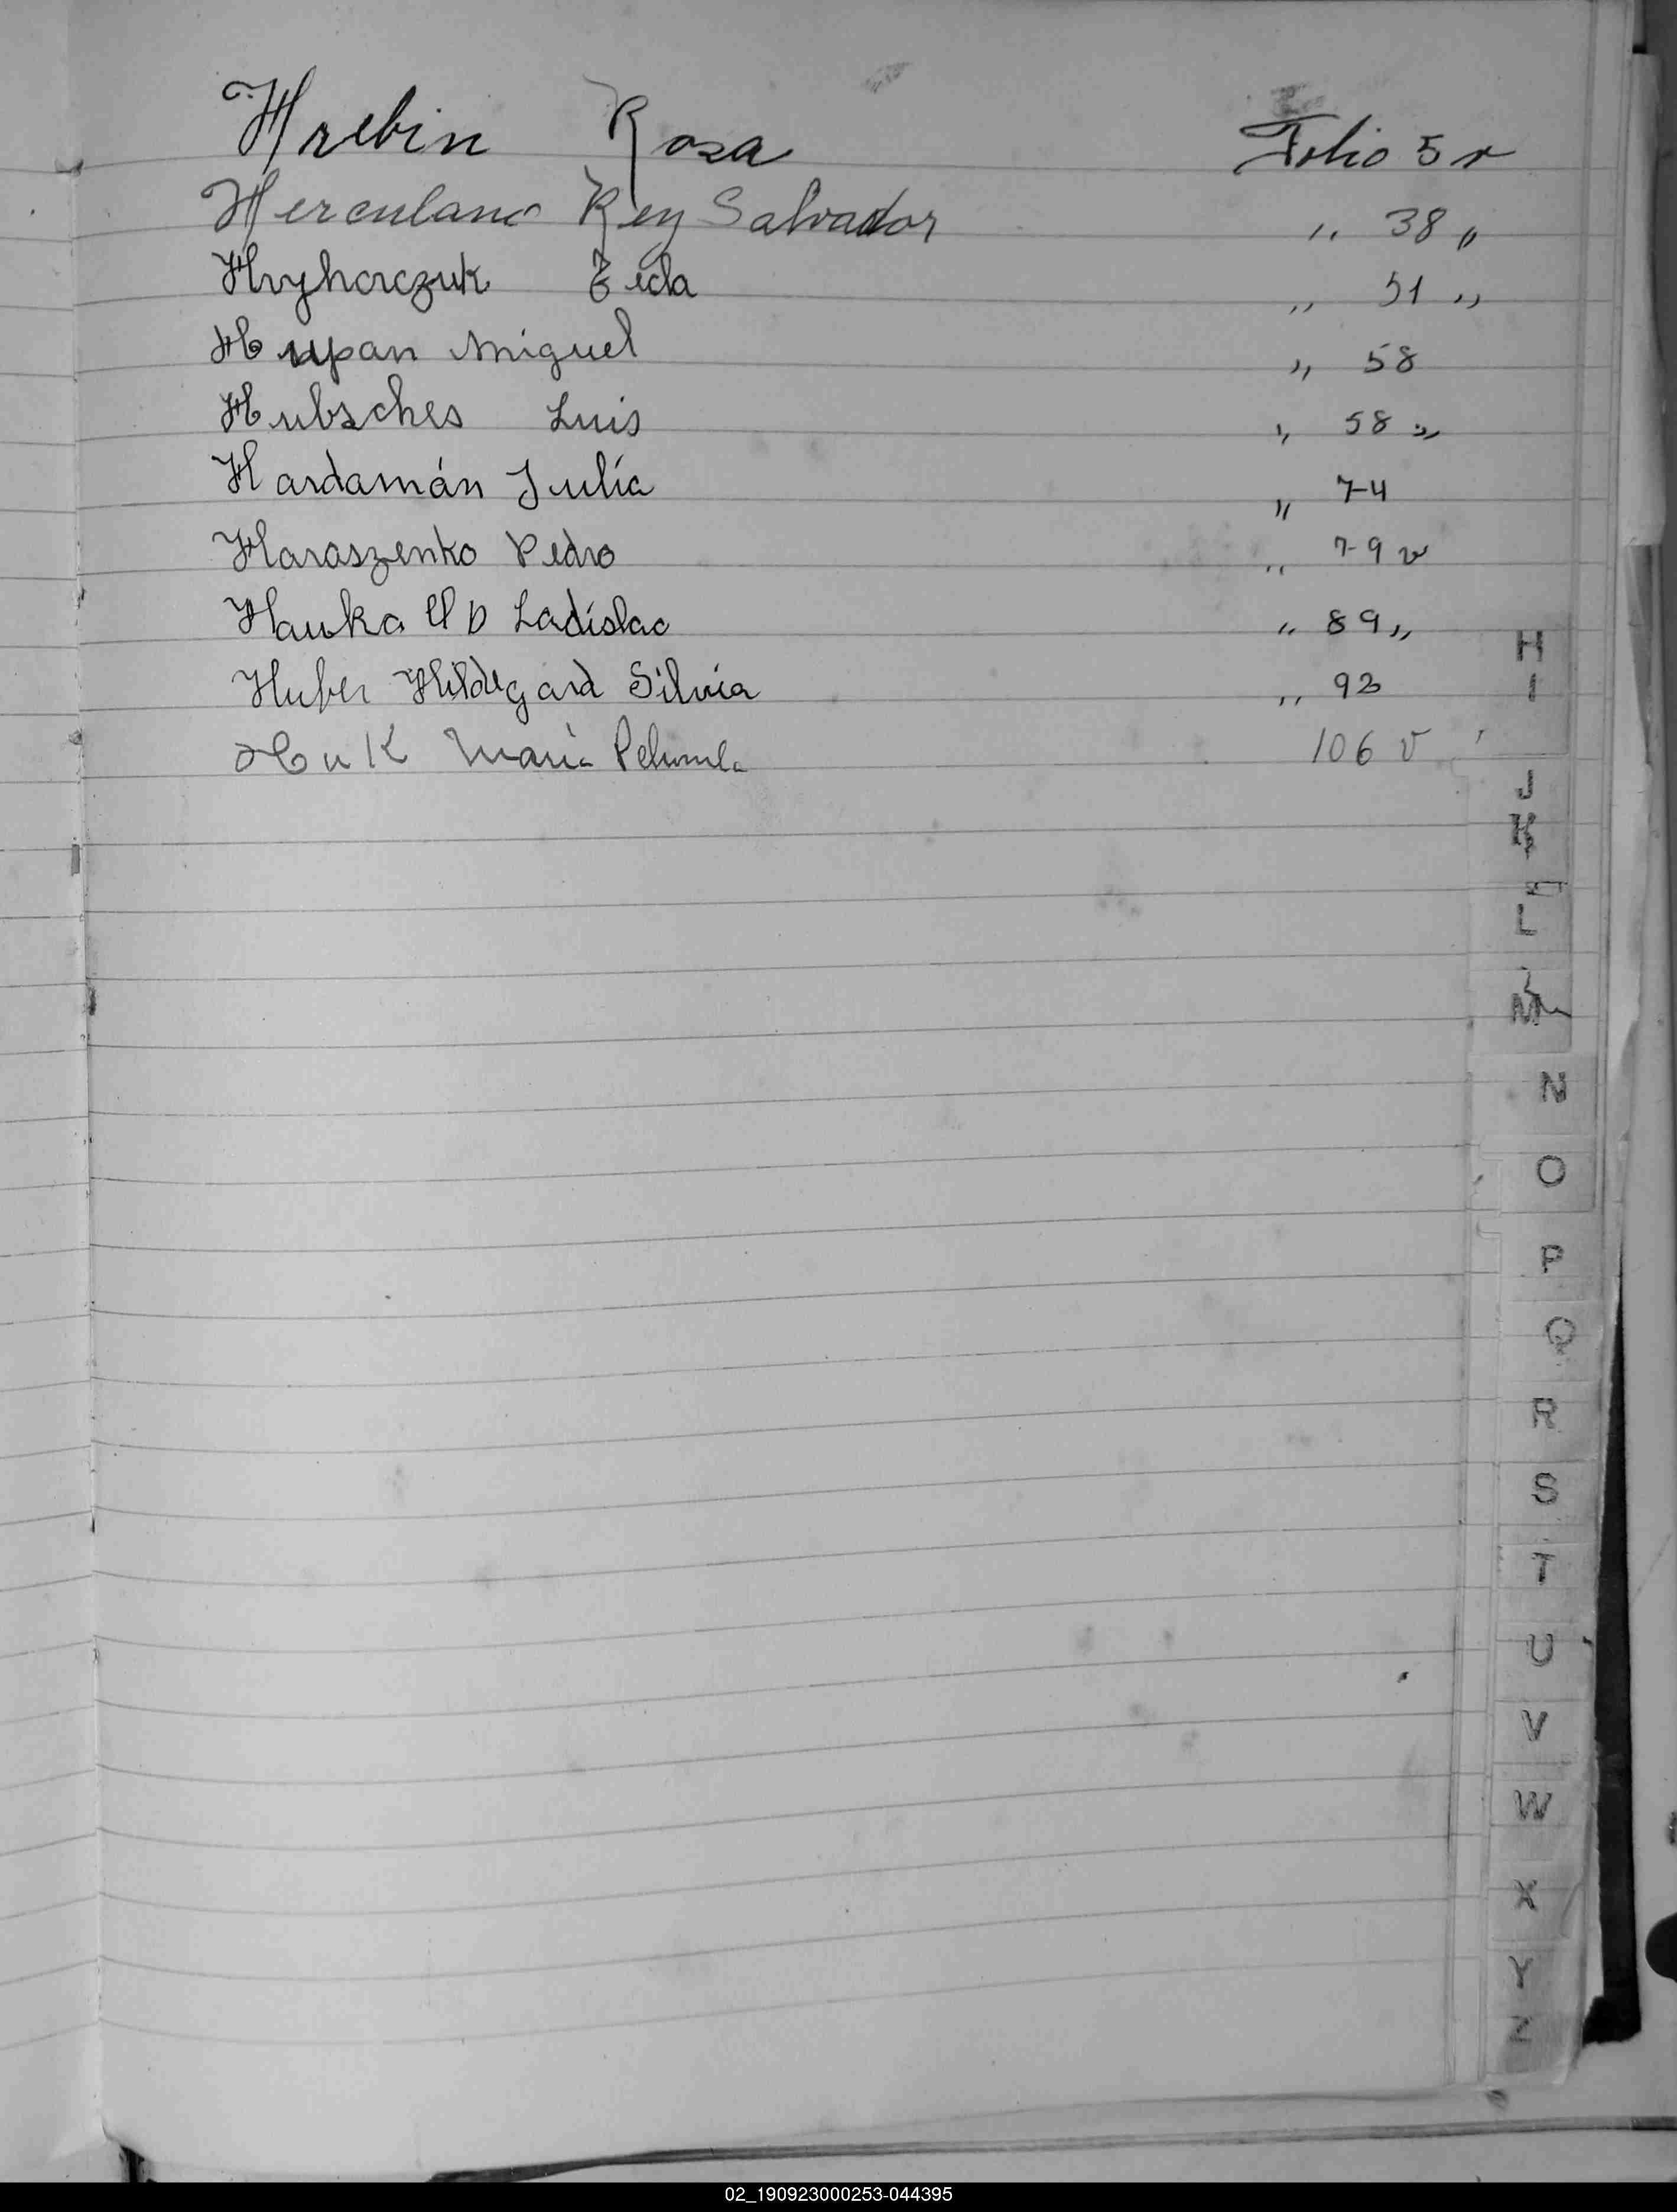 Hrebin Rosa Folio 5 v
Herculano Rey Salvador " 38 "
Hryhorczuk Tecla " 51 "
Hupan Miguel " 58
Hubsches Luis " 58 "
Hardamán Julia " 74
Haraszenko Pedro " 79 v
Hauka Ladislao " 89 "
Huber Hildegard Silvia " 93
Huk María 106 v
H
I
J
K
L
M
N
O
P
Q
R
S
T
U
V
W
X
Y
Z
02_190923000253-044395